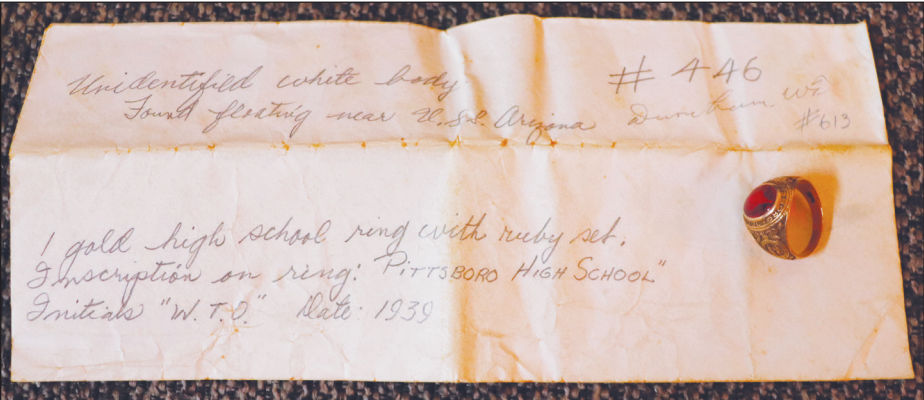 Unidentifild white body # 446
Found floating near U.S.S. Arizona Durham W.T.
#613
1 gold high school ring with ruby set.
Inscription on ring: PITTSBORO HIGH SCHOOL"
Initials "W.T.D." Date: 1939